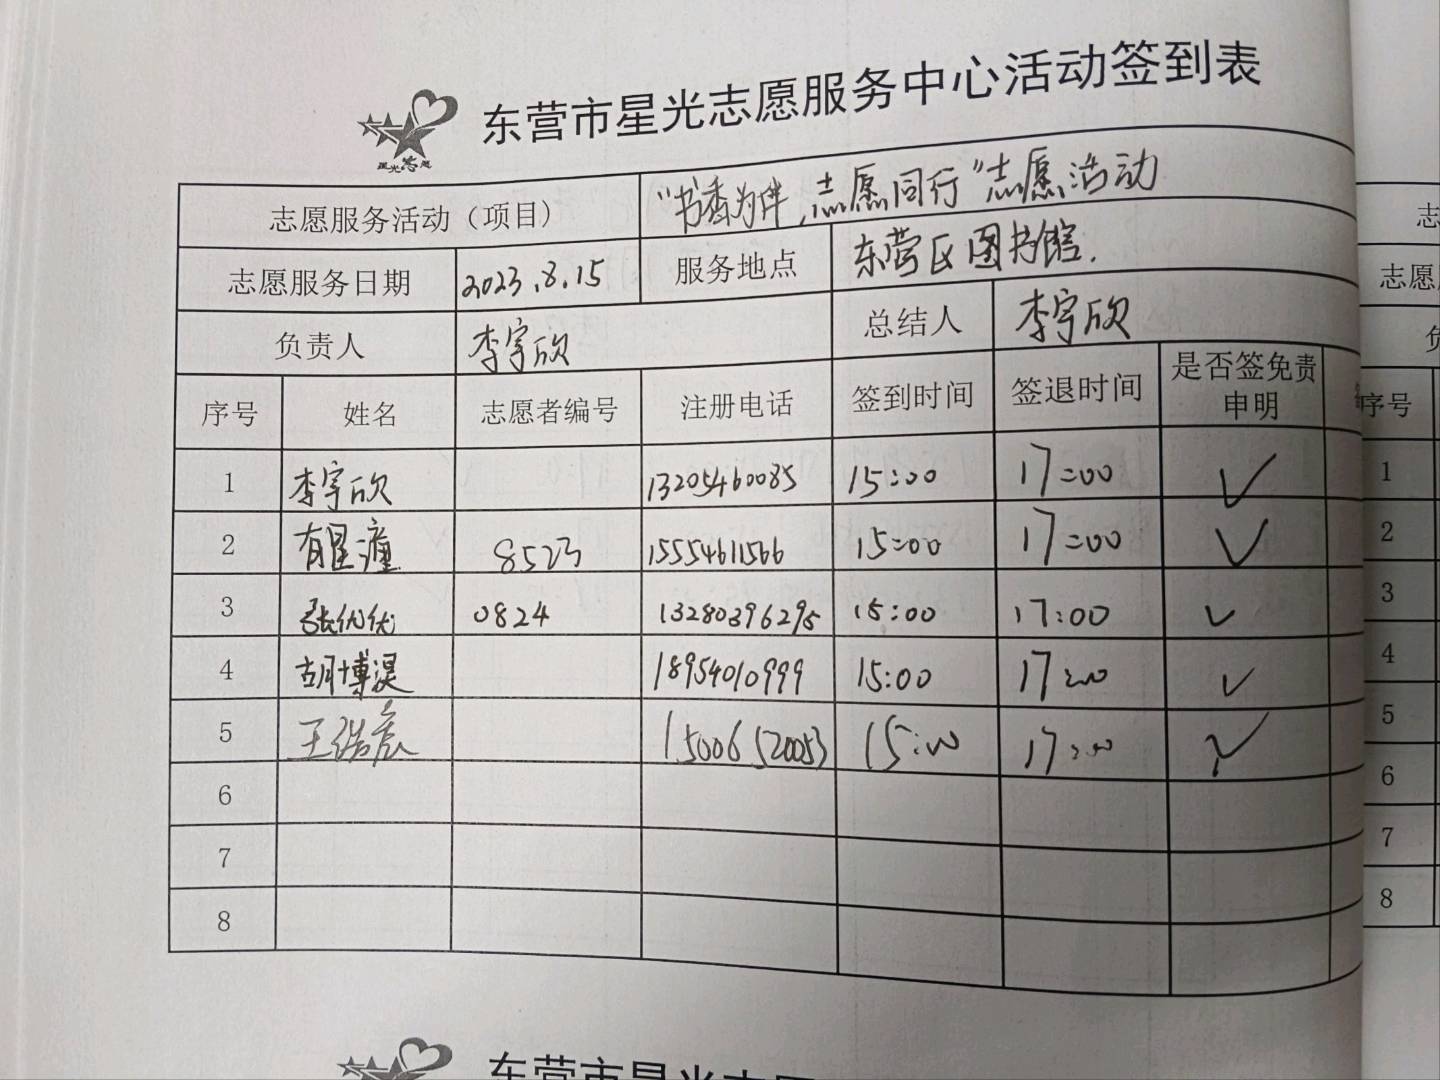 东营市星光志愿服务中心活动签到表
星光志愿
志愿服务活动（项目） "书香为伴，志愿同行"志愿活动
志愿服务日期 2023.8.15 服务地点 东营区图书馆.
负责人 李宇欣 总结人 李宇欣
序号 姓名 志愿者编号 注册电话 签到时间 签退时间 是否签免责申明
1 李宇欣 13205460085 15:00 17:00 ✓
2 8523 15554611566 15:00 17:00 ✓
3 张优优 0824 13280396295 15:00 17:00 ✓
4 胡博 18954010999 15:00 17:00 ✓
5 王浩宸 15006520053 15:00 17:00 ✓
6
7
8
志
志愿
负
序号
1
2
3
4
5
6
7
8
东营市星光志愿